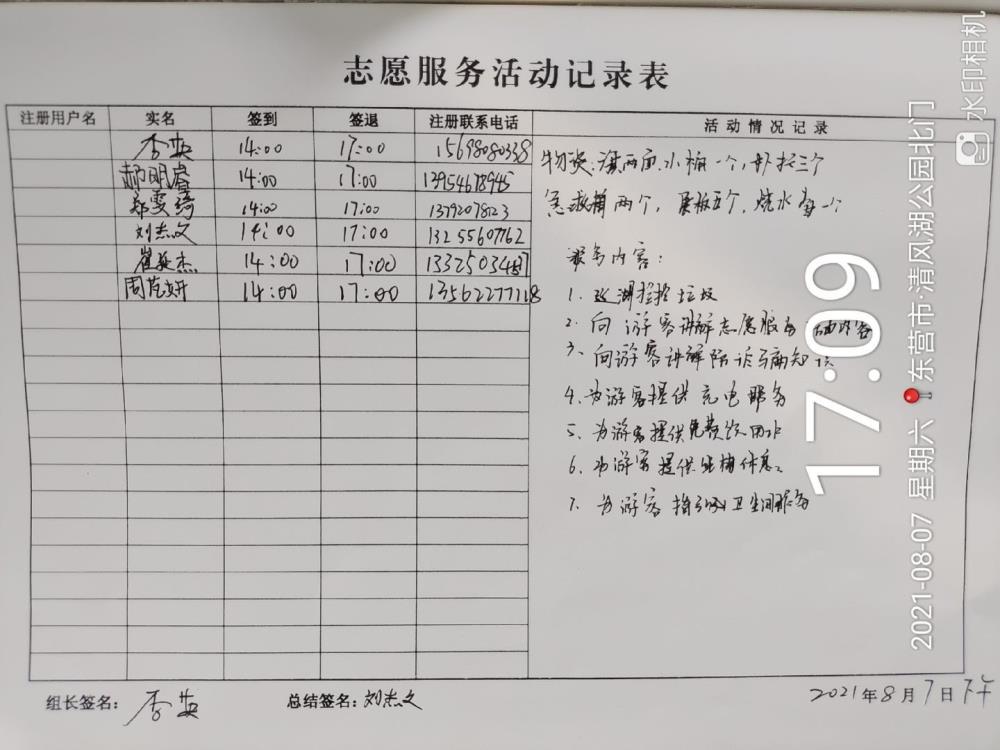 志愿服务活动记录表
注册用户名 实名 签到 签退 注册联系电话 活动情况记录
李英 14:00 17:00 15698080338
郝明睿 14:00 17:00 13954678945
郑雯绮 14:00 17:00 13792078123
刘志文 14:00 17:00 13255607762
崔延杰 14:00 17:00
周芃妍 14:00 17:00 13562277118
物资:旗两面.小桶一个,扑扎三个
急救箱两个,展板五个,烧水壶一个
服务内容:
1. 巡湖捡拾垃圾
2. 向游客讲解志愿服务活动内容
3、向游客讲解防诈骗知识
4.为游客提供充电服务
5、为游客提供免费饮用水
6、为游客提供坐椅休息.
7、为游客指引卫生间服务
组长签名:李英 总结签名:刘志文 2021年8月7日下午
水印相机
17:09
2021-08-07 星期六 东营市·清风湖公园北门